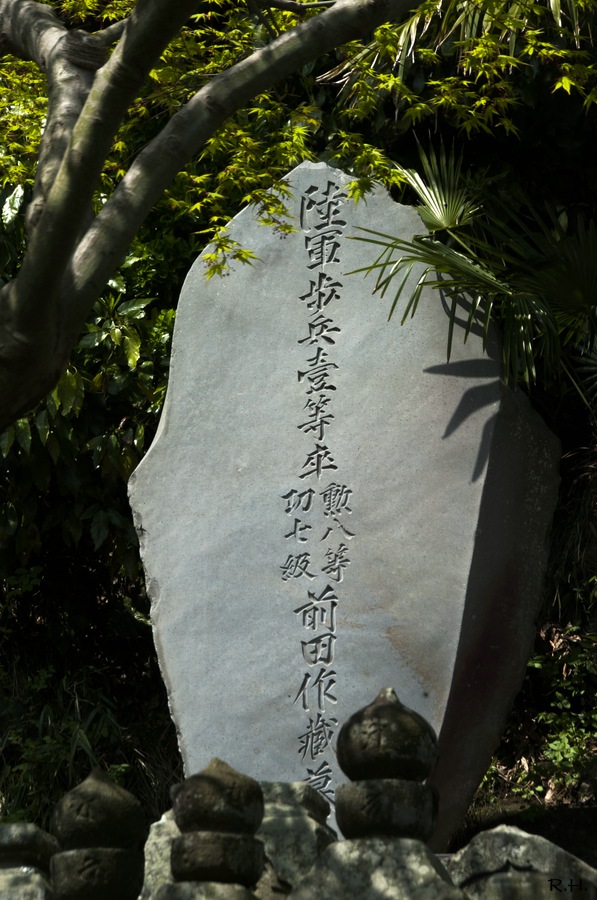 陸軍歩兵壹等卒
勲八等
功七級
前田作蔵墓
R.H.